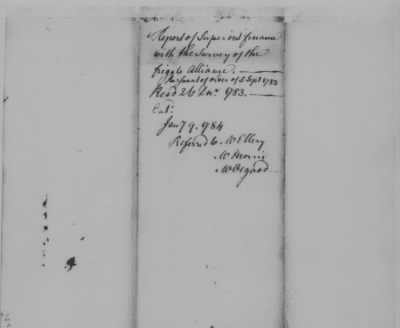 Report of Superint finance
with the survey of the
frigate Alliance.
Pursuant of order of 5 Sept 1783
Read 26 Decr. 1783.
Ent:
Jany 9. 1784
Referred to Mr Ellery
Mr Morris
Mr Osgood